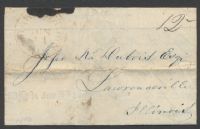 12
Jesse K. Dubois Esq.
Lawrenceville
Illinois